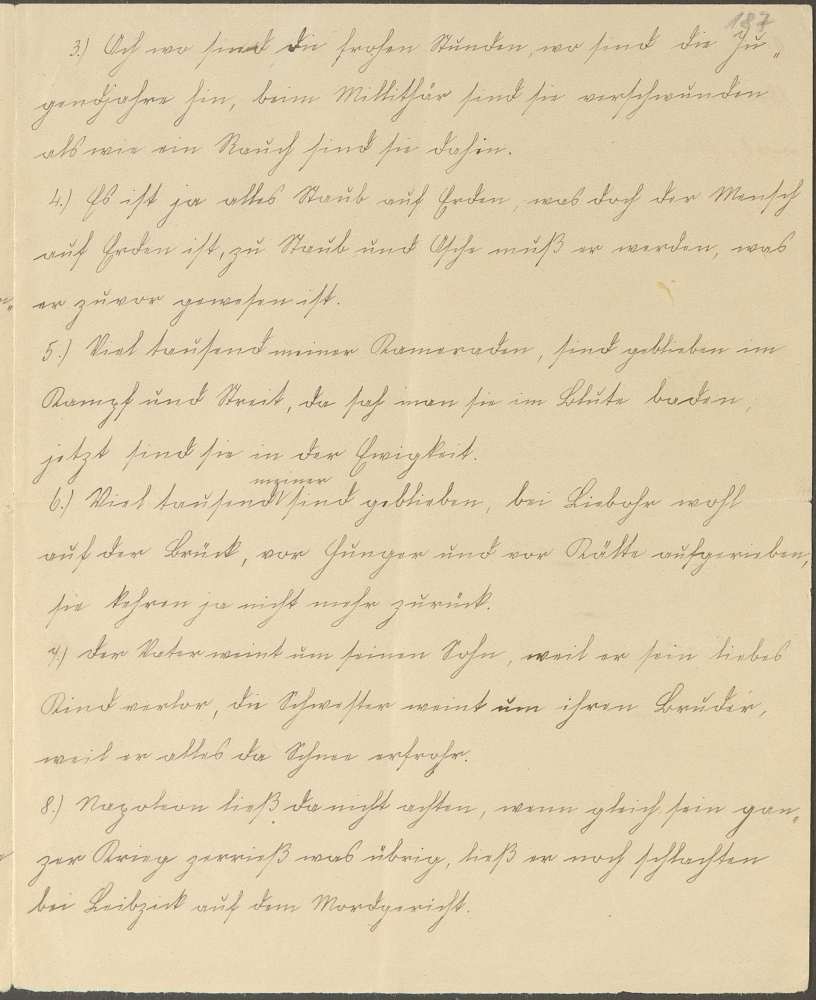 187
3.) Ach wo sind die frohen Stunden, wo sind die Ju„
gendjahre hin, beim Millithär sind sie verschwunden
als wie ein Rauch sind sie dahin.
4.) Es ist ja alles Staub auf Erden, was doch der Mensch
auf Erden ist, zu Staub und Asche muß er werden, was
er zuvor gewesen ist.
5.) Viel tausend meiner Kameraden, sind geblieben im
Kampf und Streit, da sah man sie im Blute baden,
jetzt sind sie in der Ewigkeit.
meiner
6.) Viel tausend sind geblieben, bei Liebohr wohl
auf der Brück, vor Hunger und vor Kälte aufgerieben,
sie kehren ja nicht mehr zurück.
7.) Der Vater weint um seinen Sohn, weil er sein liebes
Kind verlor, die Schwester weint um ihren Bruder,
weil er alles da Schnee erfrohr.
8.) Napoleon ließ da nicht achten, wenn gleich sein gan„
zer Krieg zerrieß was übrig, ließ er noch schlachten
bei Leibzick auf dem Mordgericht.